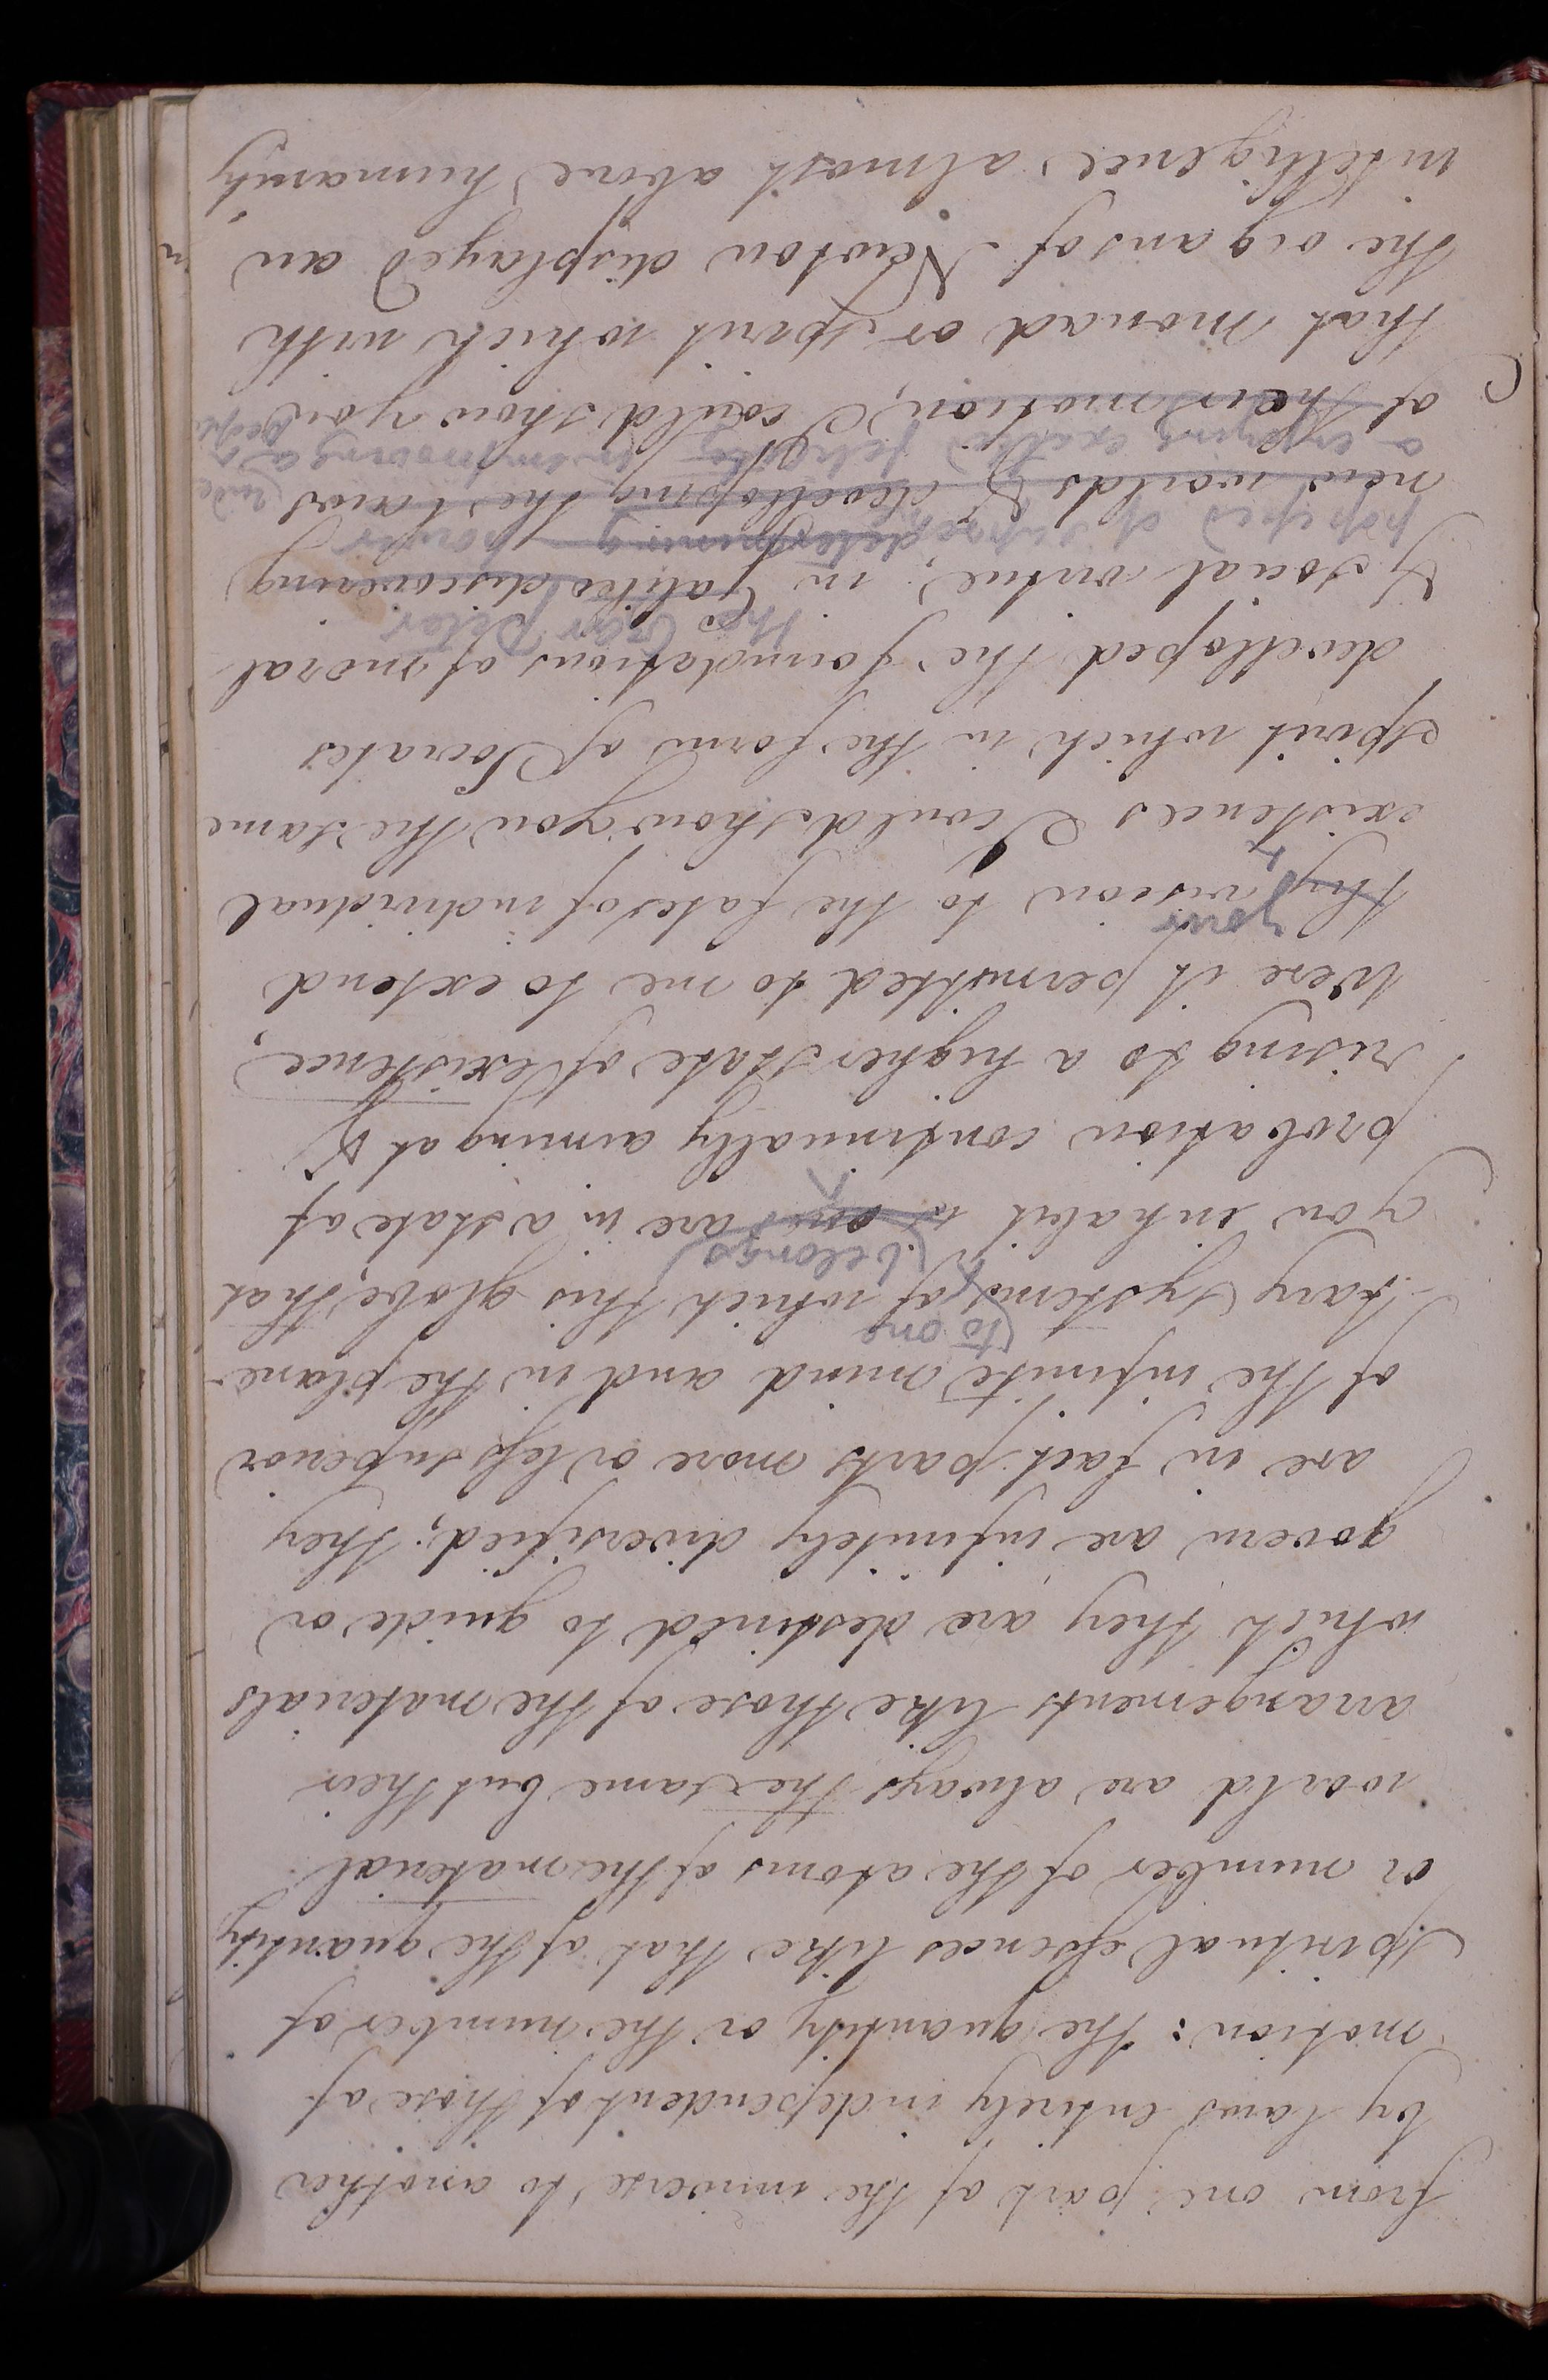 from one part of the universe to another
by laws entirely independent of those of
motion: the quantity or the number of
spiritual essences like that of the quantity
or number of the atoms of the material
world are always the same but their
arrangements like those of the materials
which they are destined to guide or
govern are infinitely diversified; they
are in fact parts more or less inferior
of the infinite mind and in the plane-
tary systems of which this globe, that
to one belongs
you inhabit is one are in a state of
probation continually aiming at &
rising to a higher state of existence,
Were it permitted to me to extend
your
thy vision to the fates of individual
existences I could show you the same
spirit which in the form of Socrates
developed the foundations of moral
& social virtue, in Galileo discovering
the Czar Peter
possessed of supreme power
new worlds & developing the laws
& enjoying exalted felicity in improving a rude people
of their motion, I could show you
that monad or spirit which with
the organs of Newton displayed an
intelligence almost above humanity,